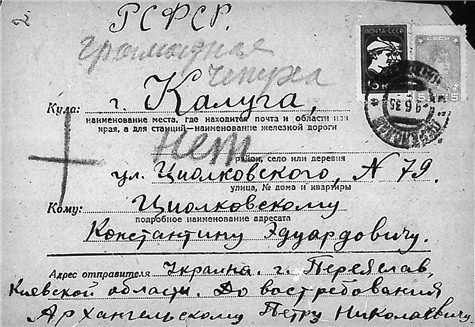 2.
РСФСР.
громадная
чепуха
ПОЧТА СССР
Куда: г. Калуга,
наименование места, где находится почта и области или
края, а для станций—наименование железной дороги
Нет
район, село или деревня
ул. Циолковского, N 79.
улица, № дома и квартиры
Кому: Циолковскому
подробное наименование адресата
Константину Эдуардовичу.
Адрес отправителя Украина. г. Переяслав,
Киевской области. До востребования
Архангельскому Петру Николаевичу